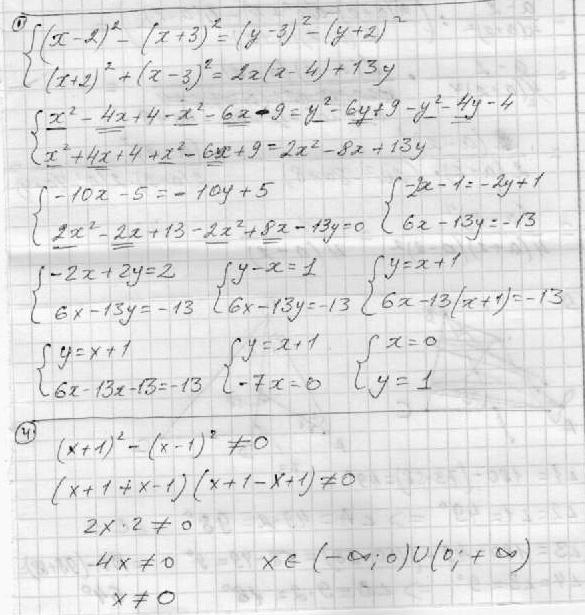 ① { (x-2)² - (x+3)² = (y-3)² - (y+2)²
(x+2)² + (x-3)² = 2x(x-4) + 13y
{ x² - 4x + 4 - x² - 6x - 9 = y² - 6y + 9 - y² - 4y - 4
x² + 4x + 4 + x² - 6x + 9 = 2x² - 8x + 13y
{ -10x - 5 = -10y + 5 { -2x - 1 = -2y + 1
2x² - 2x + 13 - 2x² + 8x - 13y = 0 6x - 13y = -13
{ -2x + 2y = 2 { y - x = 1 { y = x + 1
6x - 13y = -13 6x - 13y = -13 6x - 13(x+1) = -13
{ y = x + 1 { y = x + 1 { x = 0
6x - 13x - 13 = -13 -7x = 0 y = 1
④
(x+1)² - (x-1)² ≠ 0
(x+1+x-1)(x+1-x+1) ≠ 0
2x · 2 ≠ 0
4x ≠ 0 x ∈ (-∞; 0) ∪ (0; +∞)
x ≠ 0